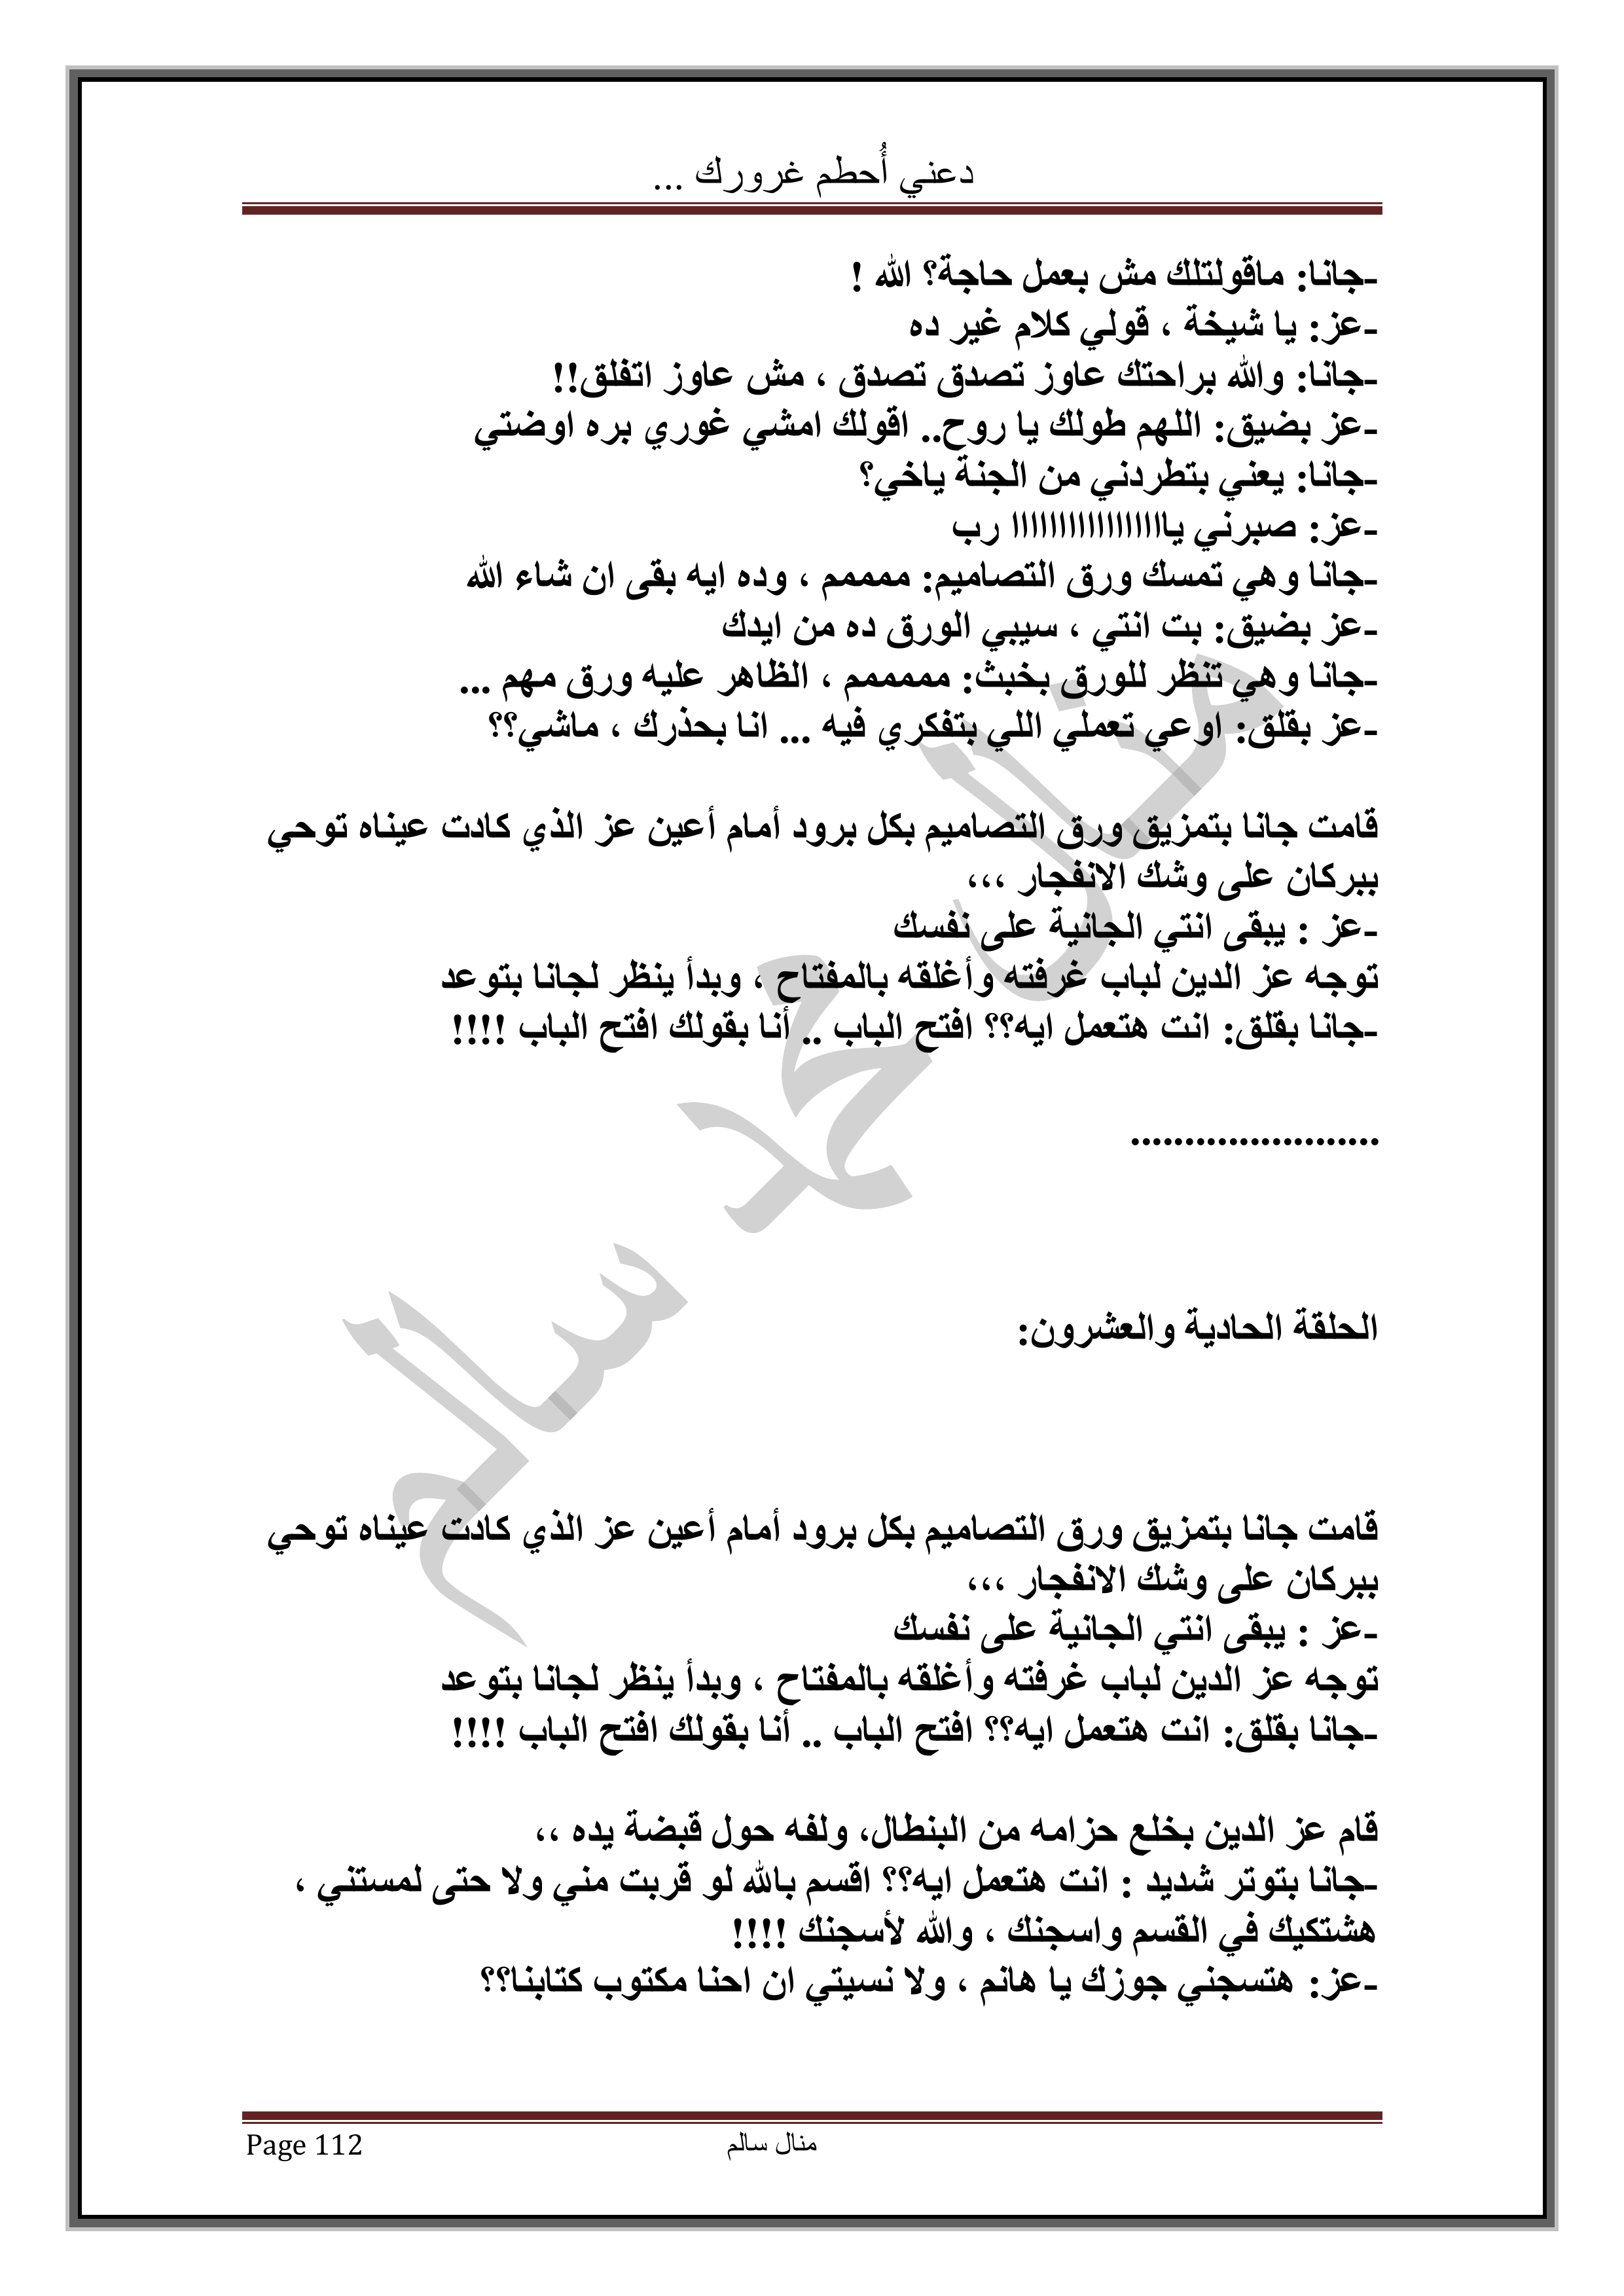 دعني أُحطم غرورك ...
-جانا: ماقولتلك مش بعمل حاجة؟ الله !
-عز: يا شيخة ، قولي كلام غير ده
-جانا: والله براحتك عاوز تصدق تصدق ، مش عاوز اتفلق!!
-عز بضيق: اللهم طولك يا روح.. اقولك امشي غوري بره اوضتي
-جانا: يعني بتطردني من الجنة ياخي؟
-عز: صبرني ياااااااااااااااااا رب
-جانا وهي تمسك ورق التصاميم: ممممم ، وده ايه بقى ان شاء الله
-عز بضيق: بت انتي ، سيبي الورق ده من ايدك
-جانا وهي تنظر للورق بخبث: مممممم ، الظاهر عليه ورق مهم ...
-عز بقلق: اوعي تعملي اللي بتفكري فيه ... انا بحذرك ، ماشي؟؟
قامت جانا بتمزيق ورق التصاميم بكل برود أمام أعين عز الذي كادت عيناه توحي
ببركان على وشك الانفجار ،،،
-عز : يبقى انتي الجانية على نفسك
توجه عز الدين لباب غرفته وأغلقه بالمفتاح ، وبدأ ينظر لجانا بتوعد
-جانا بقلق: انت هتعمل ايه؟؟ افتح الباب .. أنا بقولك افتح الباب !!!!
.......................
الحلقة الحادية والعشرون:
قامت جانا بتمزيق ورق التصاميم بكل برود أمام أعين عز الذي كادت عيناه توحي
ببركان على وشك الانفجار ،،،
-عز : يبقى انتي الجانية على نفسك
توجه عز الدين لباب غرفته وأغلقه بالمفتاح ، وبدأ ينظر لجانا بتوعد
-جانا بقلق: انت هتعمل ايه؟؟ افتح الباب .. أنا بقولك افتح الباب !!!!
قام عز الدين بخلع حزامه من البنطال، ولفه حول قبضة يده ،،
-جانا بتوتر شديد : انت هتعمل ايه؟؟ اقسم بالله لو قربت مني ولا حتى لمستني ،
هشتكيك في القسم واسجنك ، والله لأسجنك !!!!
-عز: هتسجني جوزك يا هانم ، ولا نسيتي ان احنا مكتوب كتابنا؟؟
منال محمد سالم
منال سالم
Page 112